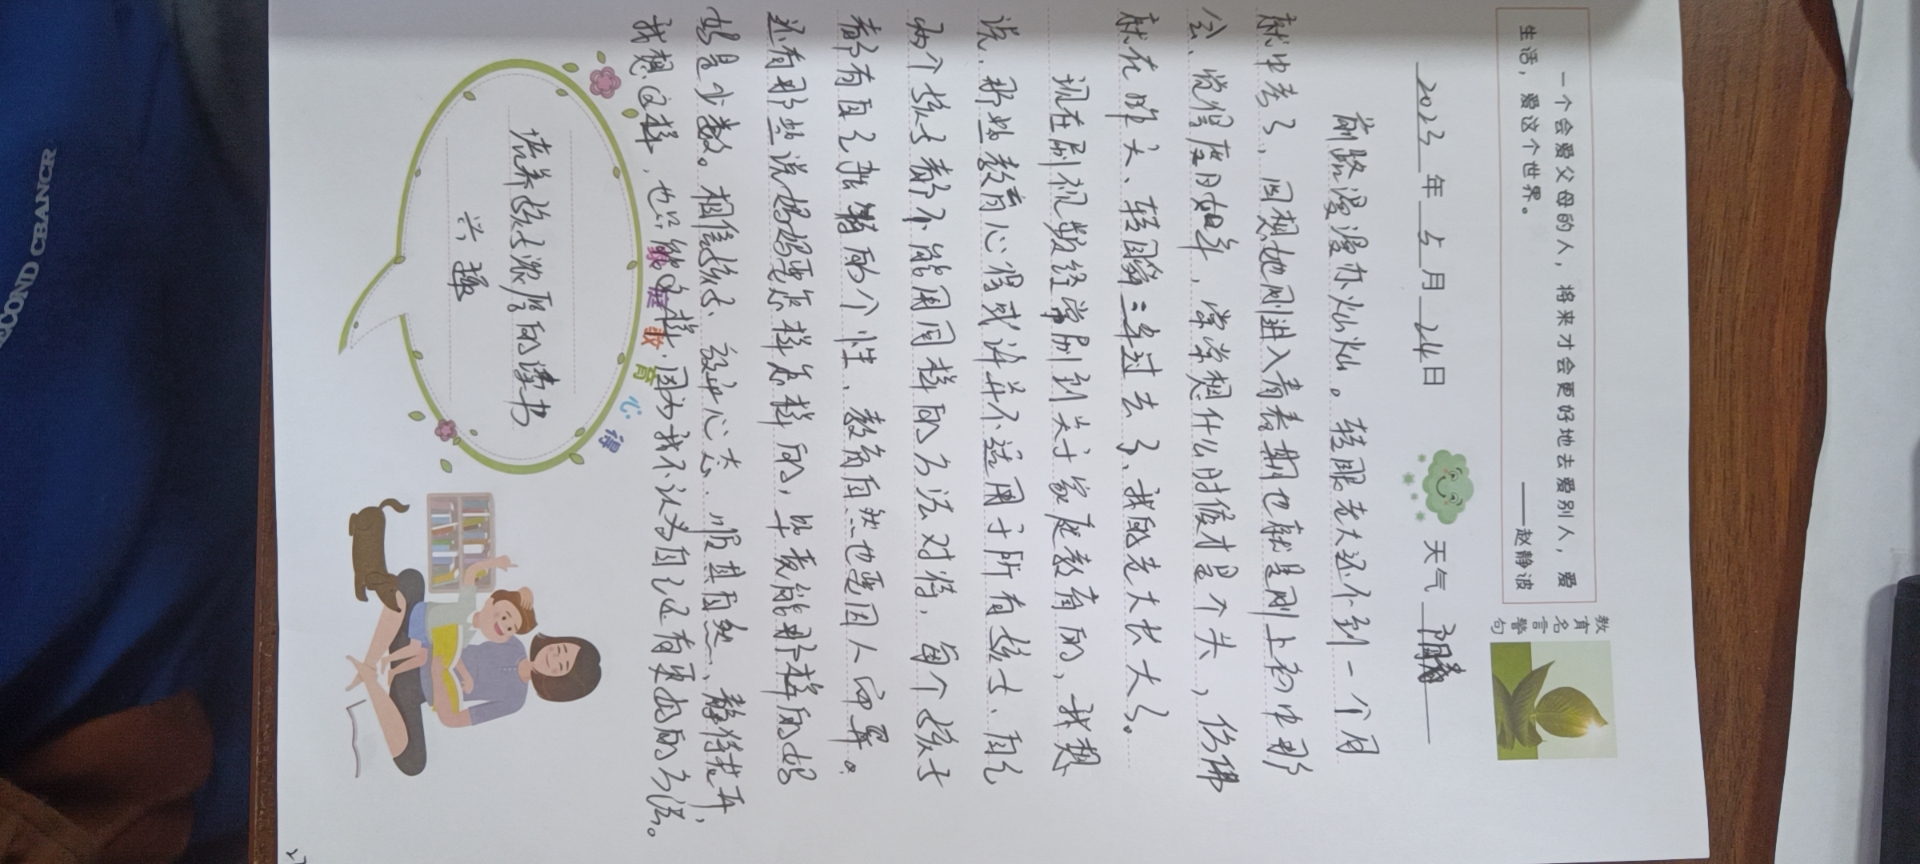 一个会爱父母的人，将来才会更好地去爱别人，爱
生活，爱这个世界。
——赵静波
教育名言警句
2023年5月24日 天气 阴
前路漫漫亦灿灿。转眼老大还不到一个月
就中考了、回想她刚进入青春期也就是刚上初中那
会、觉得度日如年，常常想什么时候才是个头，仿佛
就在昨天、转瞬三年过去了、我的老大长大了。
现在刷视频经常刷到关于家庭教育的，我想
说，那些教育心得或许并不适用于所有孩子、自己
两个孩子都不能用同样的方法对待，每个孩子
都有自己独特的个性、教育自然也要因人而异。
还有那些说妈妈要怎样怎样的，毕竟能那样的妈
妈是少数。相信孩子、放平心态、顺其自然、静待花开，
我想这样，也只能这样，因为我不认为自己还有更好的方法。
家庭教育心得
培养孩子浓厚的读书
兴趣
SECOND CHANCE